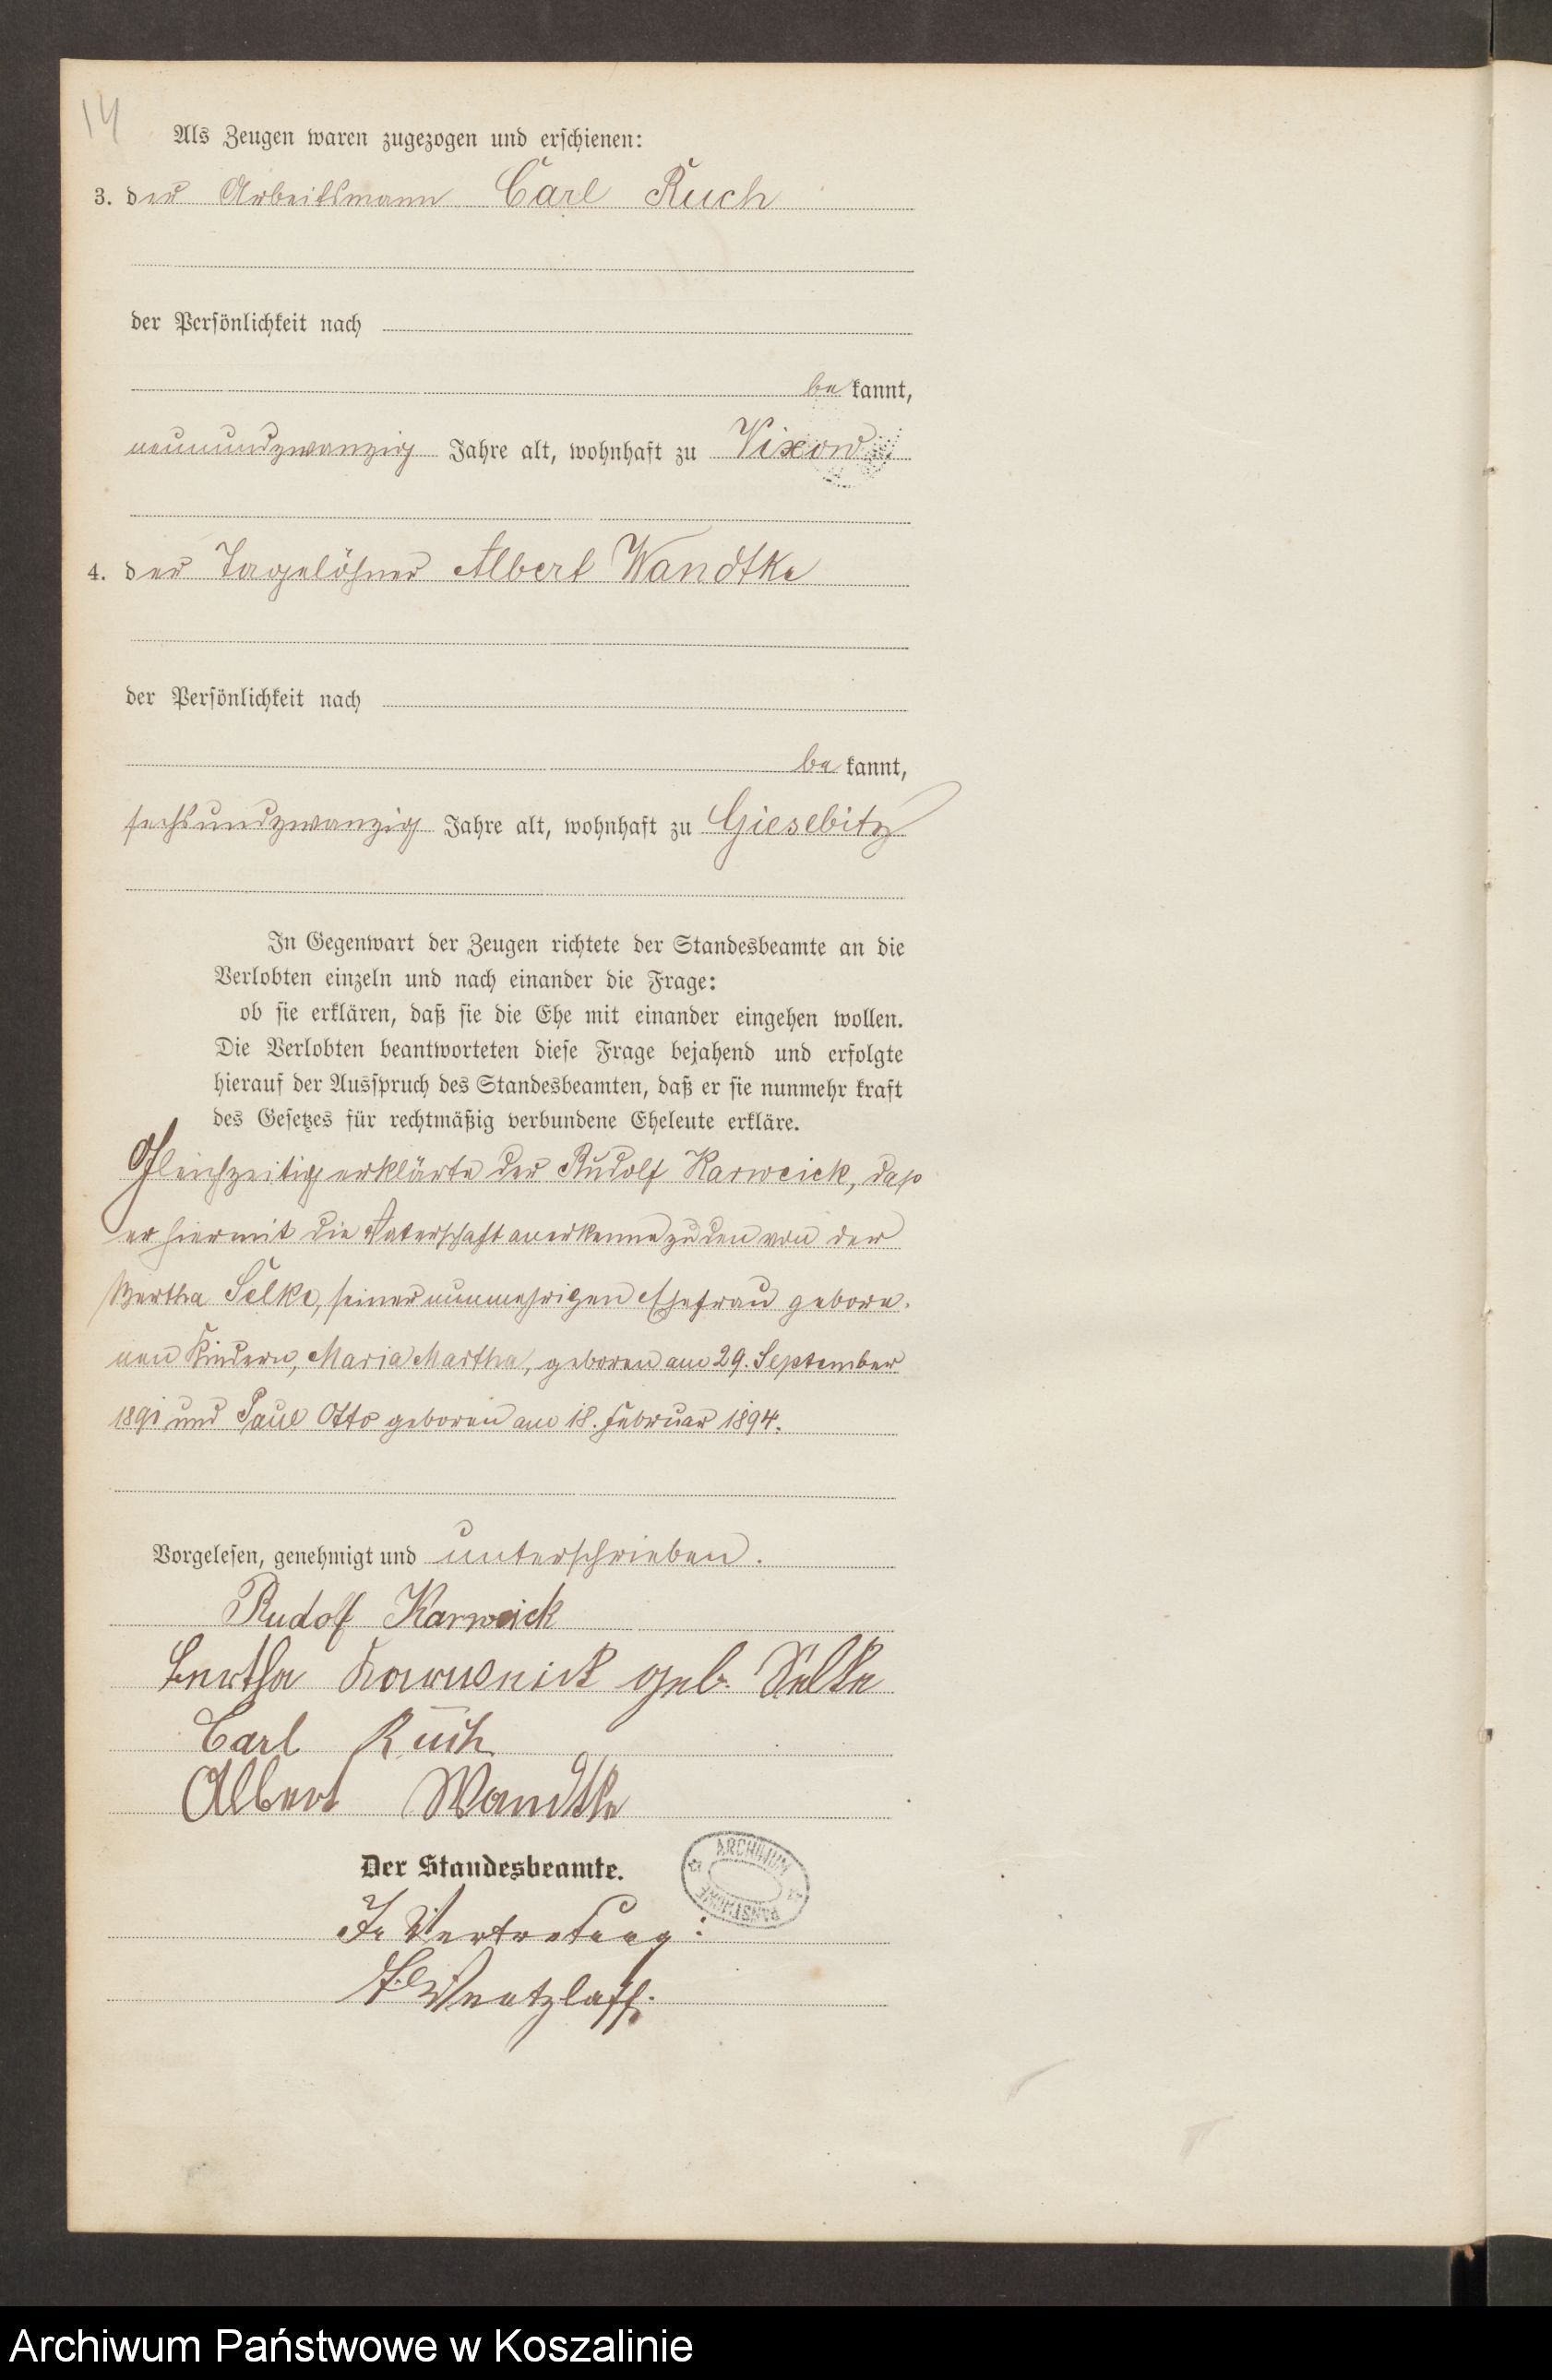 14
Als Zeugen waren zugezogen und erschienen:
3. der Arbeitsmann Carl Ruch
der Persönlichkeit nach
be kannt,
neunundzwanzig Jahre alt, wohnhaft zu Vixow
4. der Tagelöhner Albert Wandtke
der Persönlichkeit nach
be kannt,
sechsundzwanzig Jahre alt, wohnhaft zu Giesebitz
In Gegenwart der Zeugen richtete der Standesbeamte an die
Verlobten einzeln und nach einander die Frage:
ob sie erklären, daß sie die Ehe mit einander eingehen wollen.
Die Verlobten beantworteten diese Frage bejahend und erfolgte
hierauf der Ausspruch des Standesbeamten, daß er sie nunmehr kraft
des Gesetzes für rechtmäßig verbundene Eheleute erkläre.
Gleichzeitig erklärte der Rudolf Karweick, daß
er hiermit die Vaterschaft anerkenne zu den von der
Bertha Selke, seiner nunmehrigen Ehefrau gebore-
nen Kindern, Maria Martha, geboren am 29. September
1891 und Paul Otto geboren am 18. Februar 1894.
Vorgelesen, genehmigt und unterschrieben.
Rudolf Karweick
Bertha Karweick geb. Selke
Carl Ruch
Albert Wandtke
Der Standesbeamte.
ARCHIWUM PAŃSTWOWE
In Vertretung:
Wentzlaff.
Archiwum Państwowe w Koszalinie